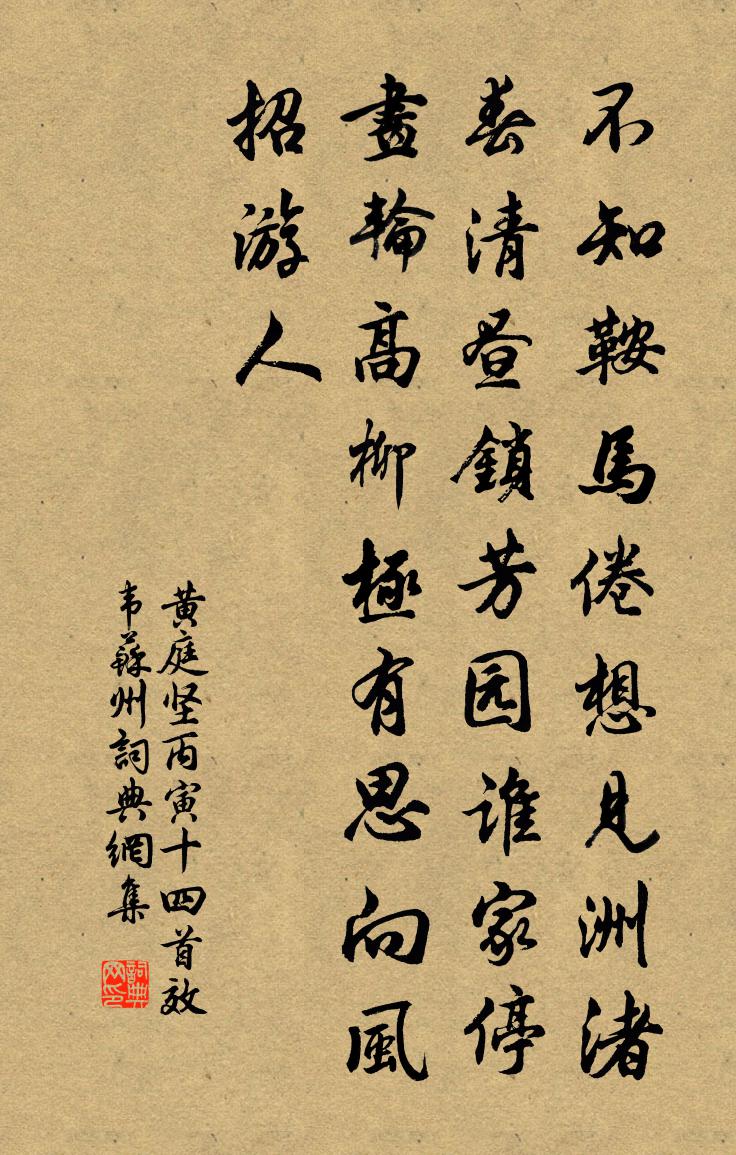 不知鞍馬倦想見洲渚
春清晝鎖芳园谁家停
畫輪高柳極有思向風
招游人
黄庭坚丙寅十四首效
韦蘇州詞典網集
詞典网印